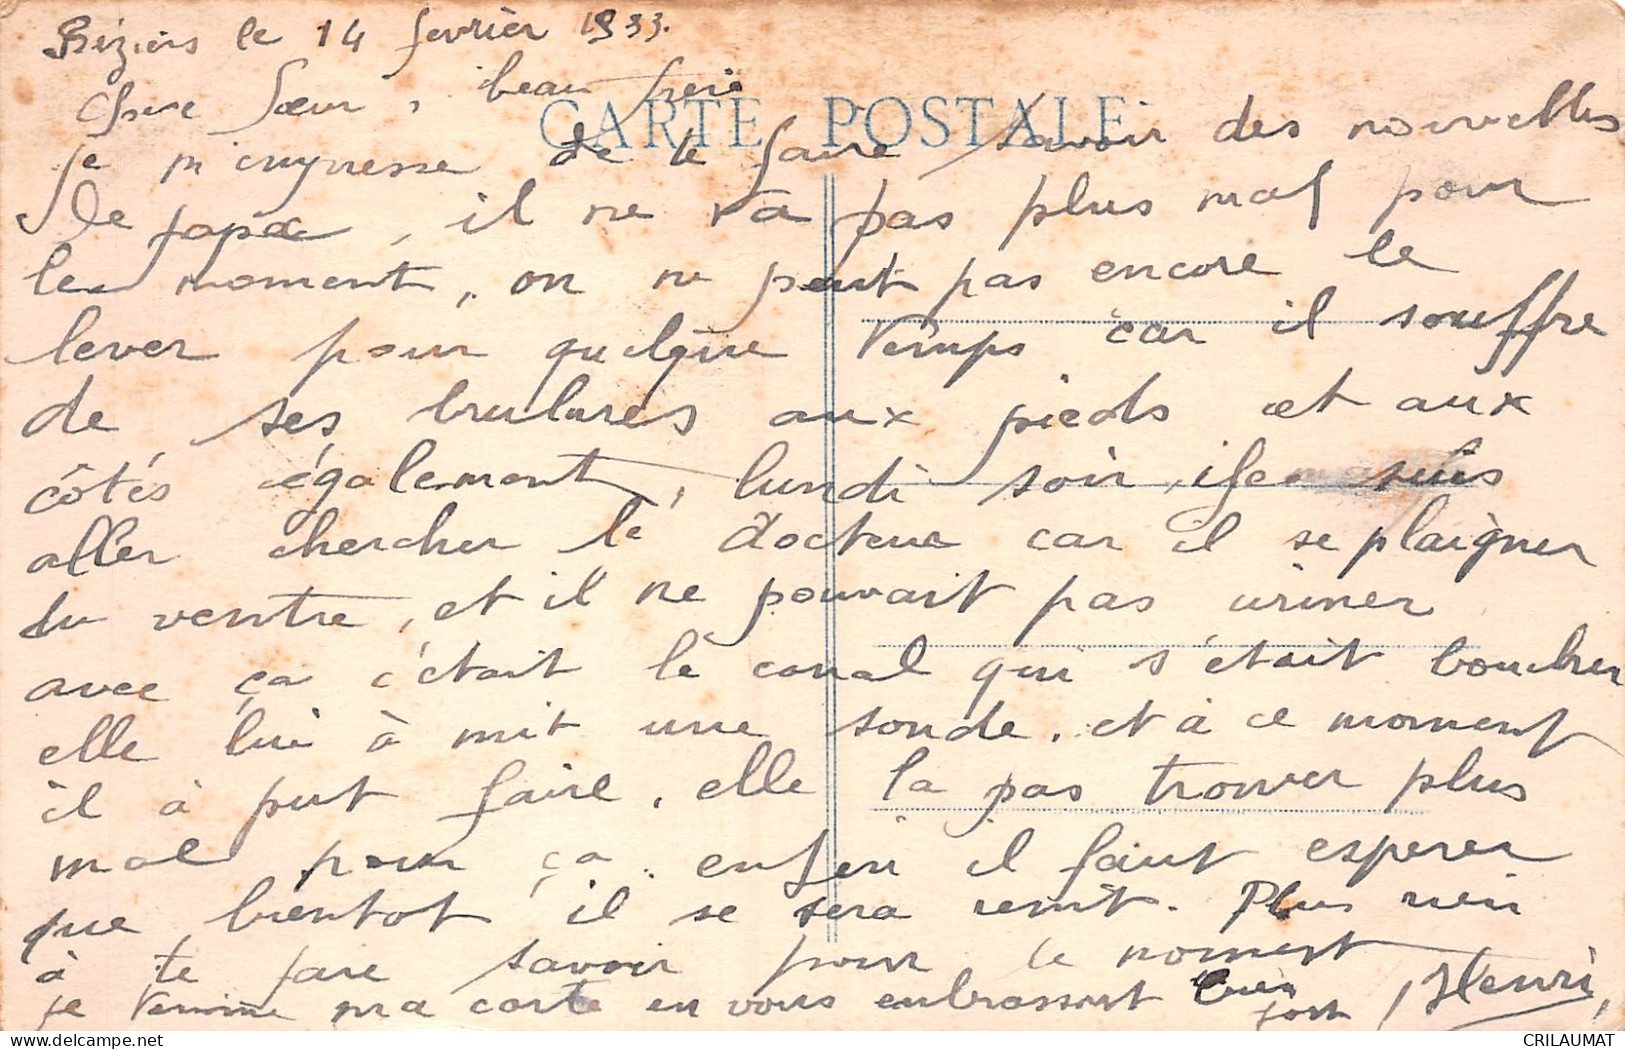 Béziers le 14 fevrièr 1933.
Chere Sœur, beau frere
CARTE POSTALE
je m'empresse de te faire savoir des nouvelles
de papa, il ne va pas plus mal pour
le moment, on ne peut pas encore le
lever pour quelque temps car il souffre
de ses brulures aux pieds et aux
côtés également, lundi soir, je suis
aller chercher le docteur car il se plaigner
du ventre, et il ne pouvait pas uriner
avec ça c'était le canal qui s'était boucher
elle lui à mit une sonde. et à ce moment
il à put faire. elle la pas trouver plus
mal pour ça. enfin il faut esperer
que bientot il se sera remit. Plus rien
à te faire savoir pour le moment
je termine ma carte en vous enbrassant bien
fort, Henri,
CRILAUMAT